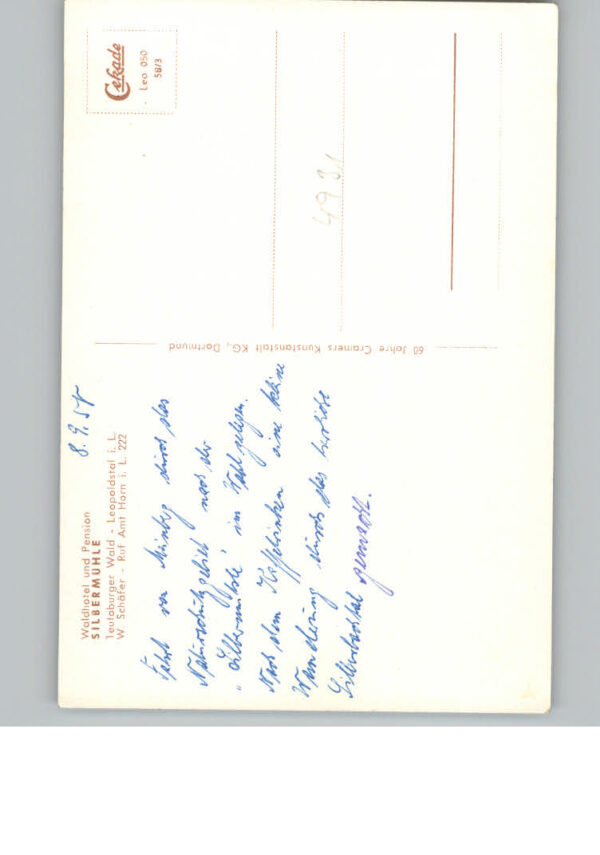 Waldhotel und Pension
SILBERMÜHLE
Teutoburger Wald - Leopoldstal i. L.
W. Schäfer - Ruf Amt Horn i. L. 222
8. 9. 58
Fahrt von Meinberg durch das
Naturschutzgebiet nach der
„Silbermühle" im Wald gelegen.
Nach dem Kaffetrinken eine kleine
Wanderung durch das herrliche
Silberbachtal gemacht.
60 Jahre Cramers Kunstanstalt KG., Dortmund
Cekade
Leo 050
58/3
4931